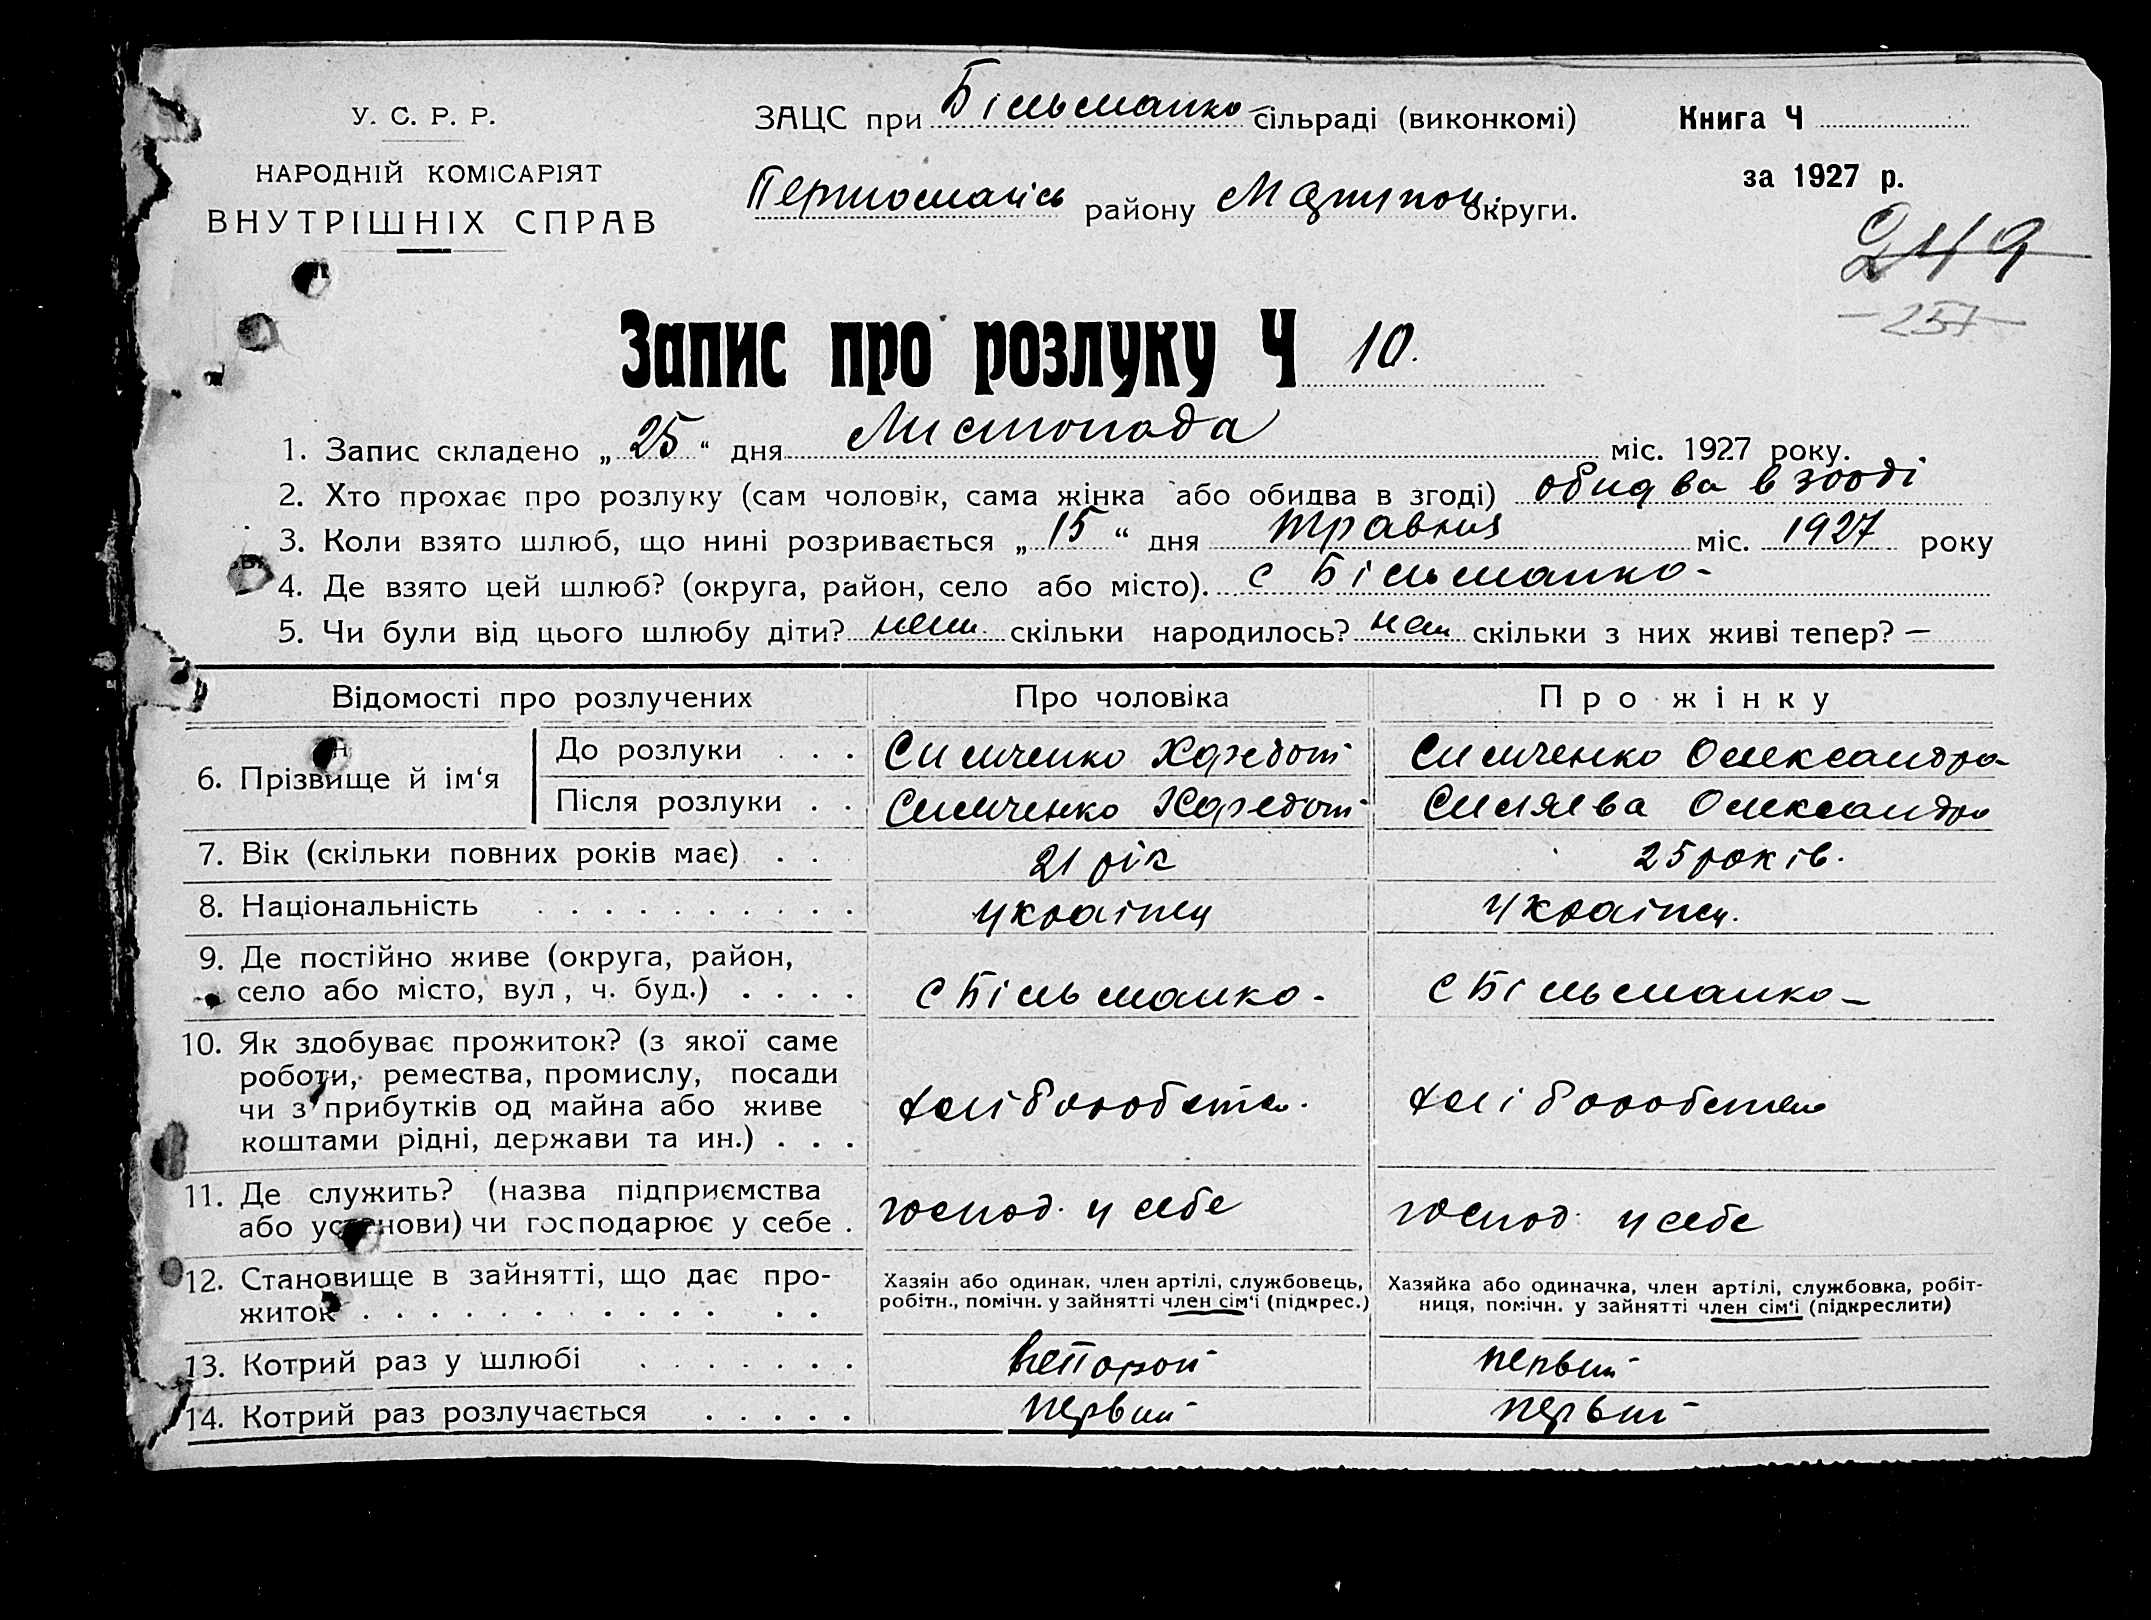 У. С. Р. Р.
НАРОДНІЙ КОМІСАРІЯТ
ВНУТРІШНІХ СПРАВ
ЗАЦС при Більманко- сільраді (виконкомі)
Першомайсь району Маріупол. округи.
Книга Ч
за 1927 р.
249
- 257 -
Запис про розлуку Ч 10.
1. Запис складено „ 25 “ дня Листопада міс. 1927 року.
2. Хто прохає про розлуку (сам чоловік, сама жінка або обидва в згоді) обидва в згоді
3. Коли взято шлюб, що нині розривається „ 15 “ дня травня міс. 1927 року
4. Де взято цей шлюб? (округа, район, село або місто). с Більманко-
5. Чи були від цього шлюбу діти? нема скільки народилось? нем скільки з них живі тепер? —
Відомості про розлучених Про чоловіка Про жінку
6. Прізвище й ім‘я
До розлуки . . . Симченко Симченко Олександра
Після розлуки . . Симченко Олександра
7. Вік (скільки повних років має) . . 21 рік 25 років.
8. Національність . . . . . . . . . . українц українц.
9. Де постійно живе (округа, район,
село або місто, вул, ч. буд.) . . . . с Більманко- с Більманко-
10. Як здобуває прожиток? (з якої саме
роботи, ремества, промислу, посади
чи з прибутків од майна або живе
коштами рідні, держави та ин.) . . . хліборобств. хліборобством
11. Де служить? (назва підприємства
або установи) чи господарює у себе . господ. у себе господ. у себе
12. Становище в зайнятті, що дає про-
житок . . . . . . . . . . . .
Хазяїн або одинак, член артілі, службовець,
робітн., помічн. у зайнятті член сім‘ї (підкрес.)
Хазяйка або одиначка, член артілі, службовка, робіт-
ниця, помічн. у зайнятті член сім‘ї (підкреслити)
13. Котрий раз у шлюбі . . . . . . . второй первый
14. Котрий раз розлучається . . . . . первий первий